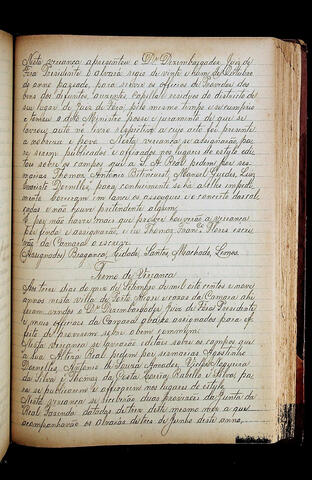 Nesta vereança apresentou o Dr. Dezembargador, Juiz de
Fora Presidente o alvará regio de vinte e hum de Outubro
do anno passado, para servir os officios de Provedor dos
bens dos defuntos, auzentes, capellas e residuos do districto de
seu lugar de Juiz de Fora, pelo mesmo tempo
e tomou o dito Ministro posse e juramento de que se
lavrou auto no livro respectivo a cujo acto foi presente
a nobreza e povo. Nesta vereança se
se publicados e afixados nos lugares do estylo edi-
taes sobre os campos que a S. A. Real pedem por ses-
marias Thomaz Antonio Manoel Guedes, Luiz
Dornelles, para conhecimento se ha a elles impedi-
mento
e não houve pretendente algum.
E por não haver mais que prover houverão a vereança
por finda e assignarão, e eu Thomaz Franco. Flores escri-
vão da Camara o escrevi.
(Assignados) Bragança, Santos, Machado, Lemos.
Termo de Vereança
Aos tres dias do mez de Setembro de mil oito centos e nove
annos nesta villa de Porto Alegre e cazas da Camara ahi
vindos o Dr. Dezembargador Juiz de Fora Presidente
e mais officiaes da Camara abaixo assignados para ef-
feito de proverem sobre o bem commum.
Nesta vereança se lavrarão editaes sobre os campos que
a Sua Alteza Real pedem por sesmarias Agostinho
Dornelles, Antonio de Souza Amador, Nogueira
da Silva e Thomaz da Costa Corrêa Rabello e Silva, pa-
ra se publicarem e affixarem nos lugares do estylo.
Nesta vereança se receberão duas provizões da Junta da
Real Fazenda datadas de tres deste mesmo mez a que
acompanharão os Alvarás de tres de Junho deste anno,